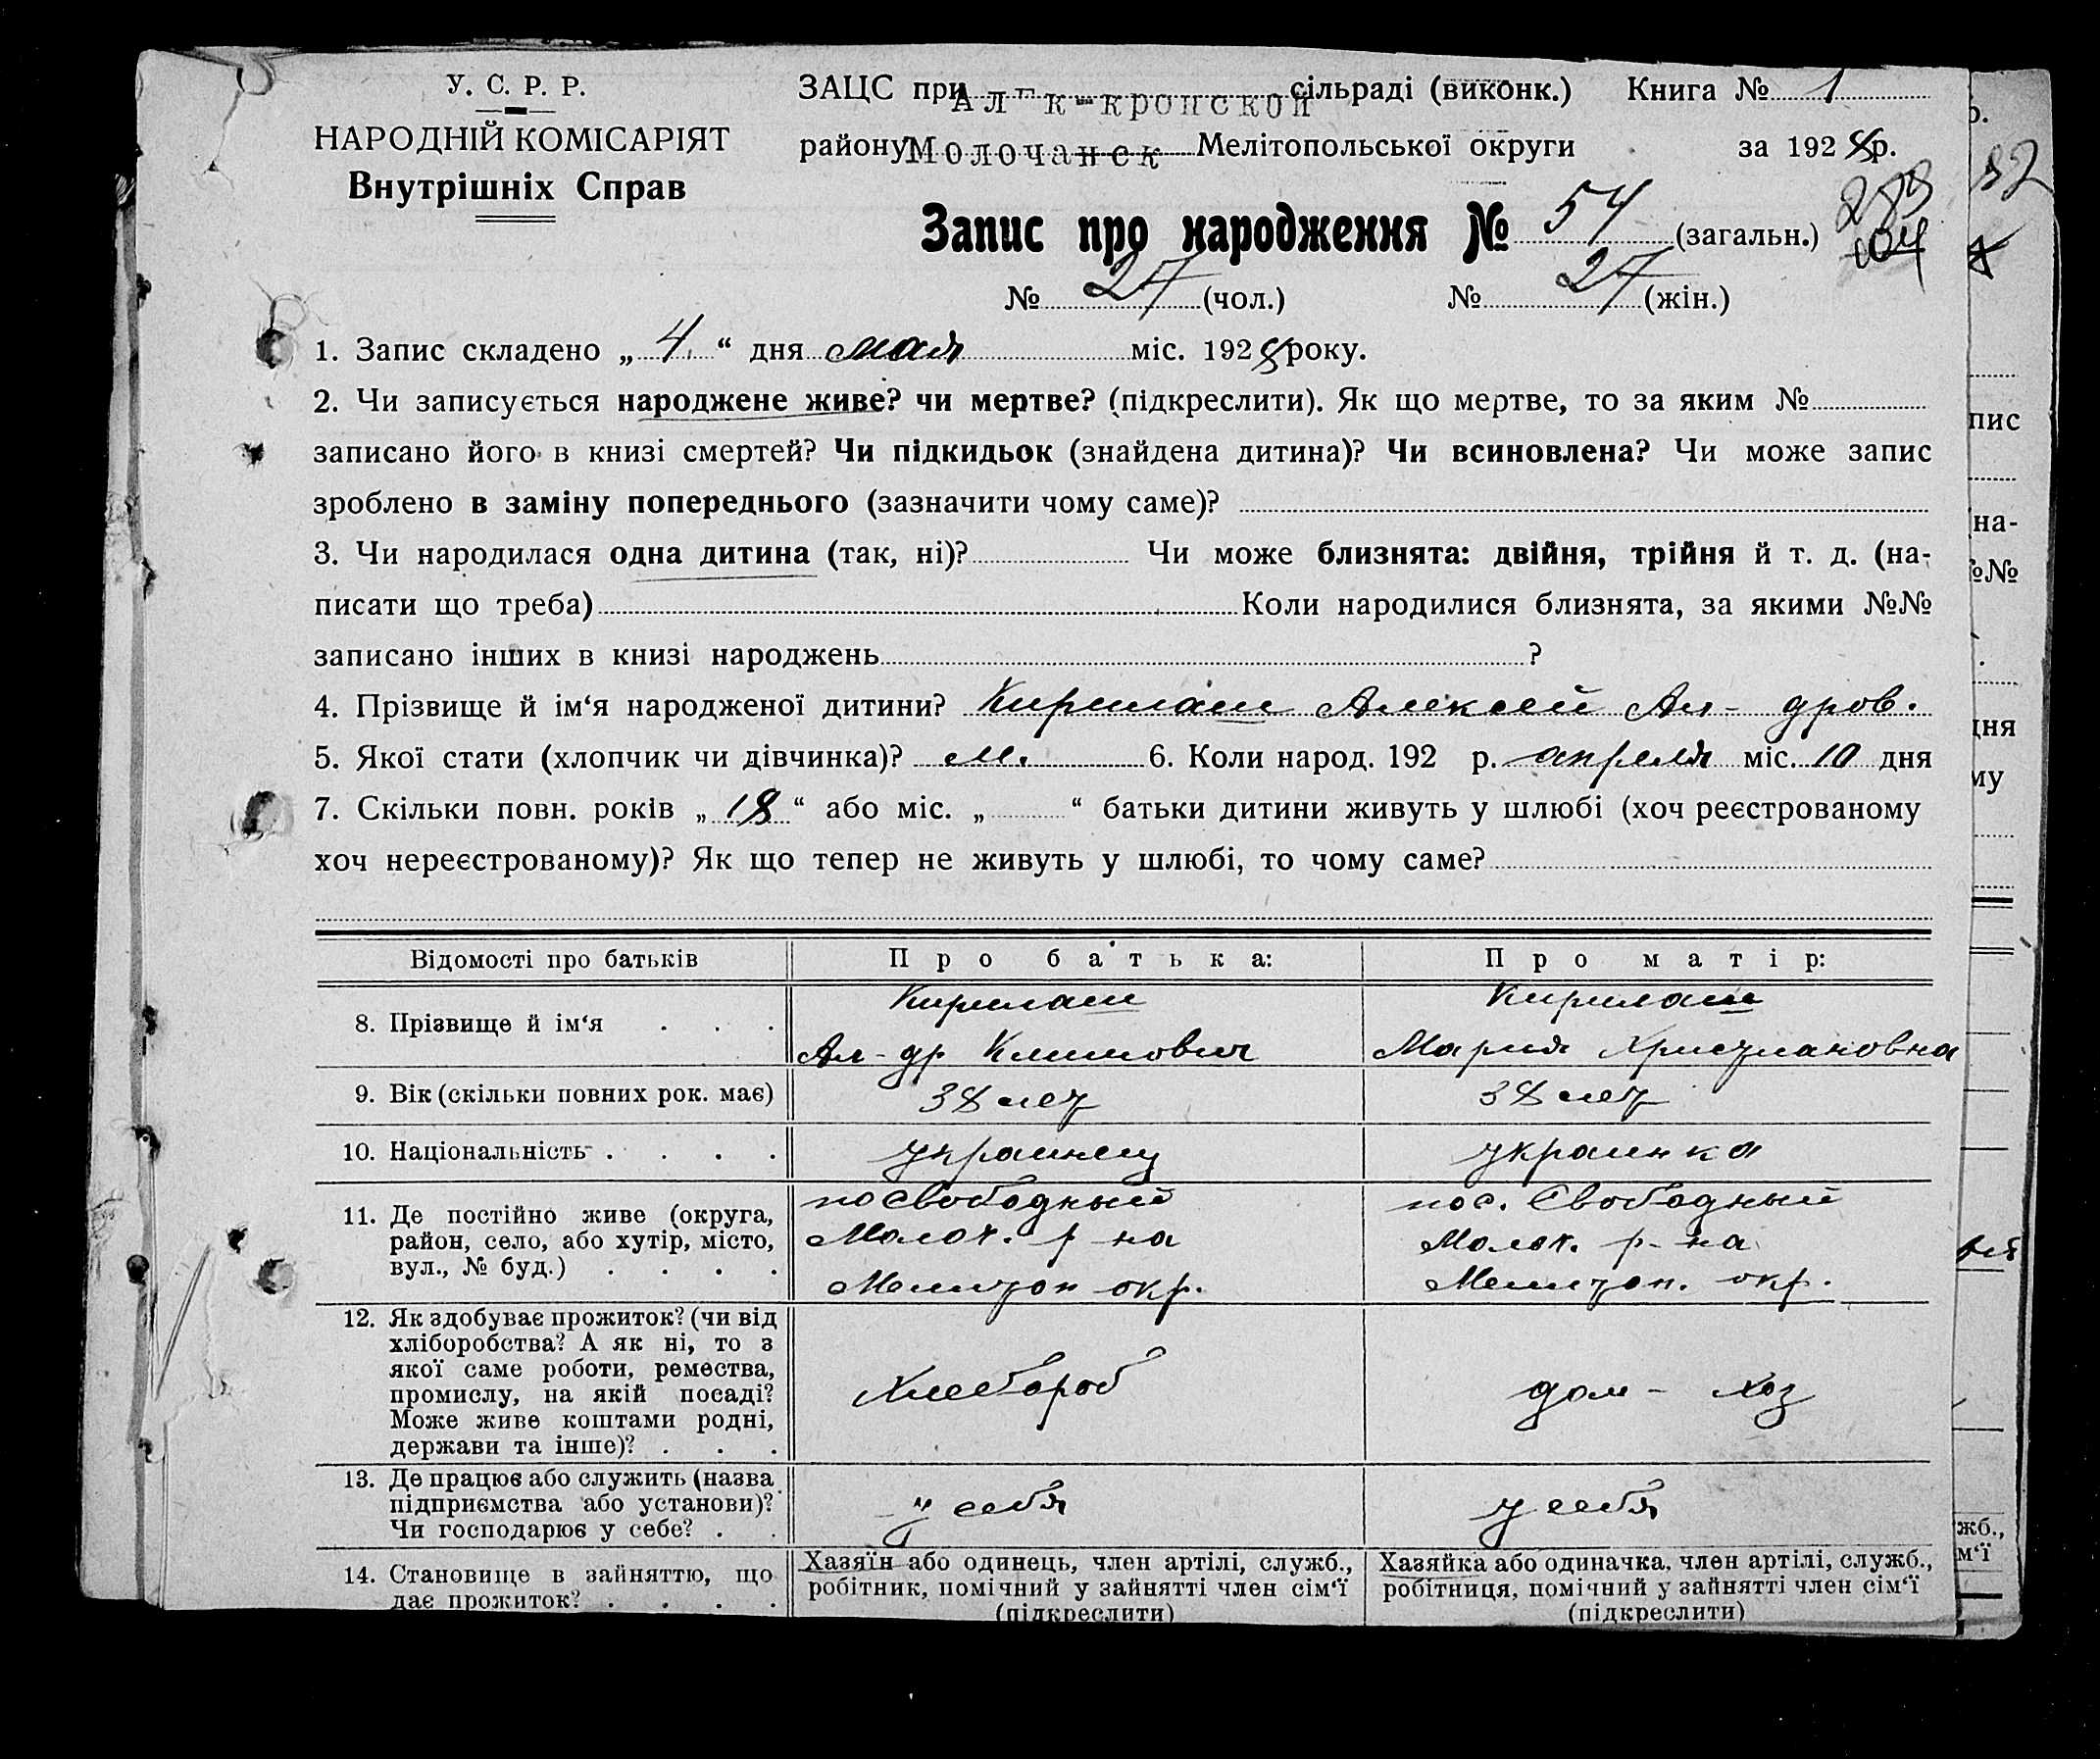 У. С. Р. Р.
НАРОДНІЙ КОМІСАРІЯТ
Внутрішніх Справ
ЗАЦС при Ал-к-кронской сільраді (виконк.) Книга № 1
району Молочанск Мелітопольської округи за 1928 р.
Запис про народження № 54 (загальн.)
№ 27 (чол.) № 27 (жін.)
1. Запис складено „ 4. “ дня мая міс. 1928 року.
2. Чи записується народжене живе? чи мертве? (підкреслити). Як що мертве, то за яким №
записано його в книзі смертей? Чи підкидьок (знайдена дитина)? Чи всиновлена? Чи може запис
зроблено в заміну попереднього (зазначити чому саме)?
3. Чи народилася одна дитина (так, ні)? Чи може близнята: двійня, трійня й т. д. (на-
писати що треба) Коли народилися близнята, за якими №№
записано інших в книзі народжень ?
4. Прізвище й ім‘я народженої дитини? Кирилаш Алексей Ал-дров.
5. Якої стати (хлопчик чи дівчинка)? м. 6. Коли народ. 192 р. апреля міс. 10 дня
7. Скільки повн. років „ 18 “ або міс. „ “ батьки дитини живуть у шлюбі (хоч реєстрованому
хоч нереєстрованому)? Як що тепер не живуть у шлюбі, то чому саме?
Відомості про батьків Про батька: Про матір:
8. Прізвище й ім‘я
Кирилаш
Ал-др Климович
Кирилаш
Мария Христиановна
9. Вік (скільки повних рок. має) 38 лет 38 лет
10. Національність украинец украинка
11. Де постійно живе (округа,
район, село, або хутір, місто,
вул., № буд.)
по Свободный
Молоч. р-на
Мелитоп окр.
пос. Свободный
Молоч. р-на
Мелитоп. окр.
12. Як здобуває прожиток? (чи від
хліборобства? А як ні, то з
якої саме роботи, ремества,
промислу, на якій посаді?
Може живе коштами родні,
держави та інше)?
Хлебороб
дом-хоз
13. Де працює або служить (назва
підприємства або установи)?
Чи господарює у себе?
у себя
у себя
14. Становище в зайняттю, що
дає прожиток?
Хазяїн або одинець, член артілі, служб.,
робітник, помічний у зайнятті член сім‘ї
(підкреслити)
Хазяйка або одиначка, член артілі, служб.,
робітниця, помічний у зайнятті член сім‘ї
(підкреслити)